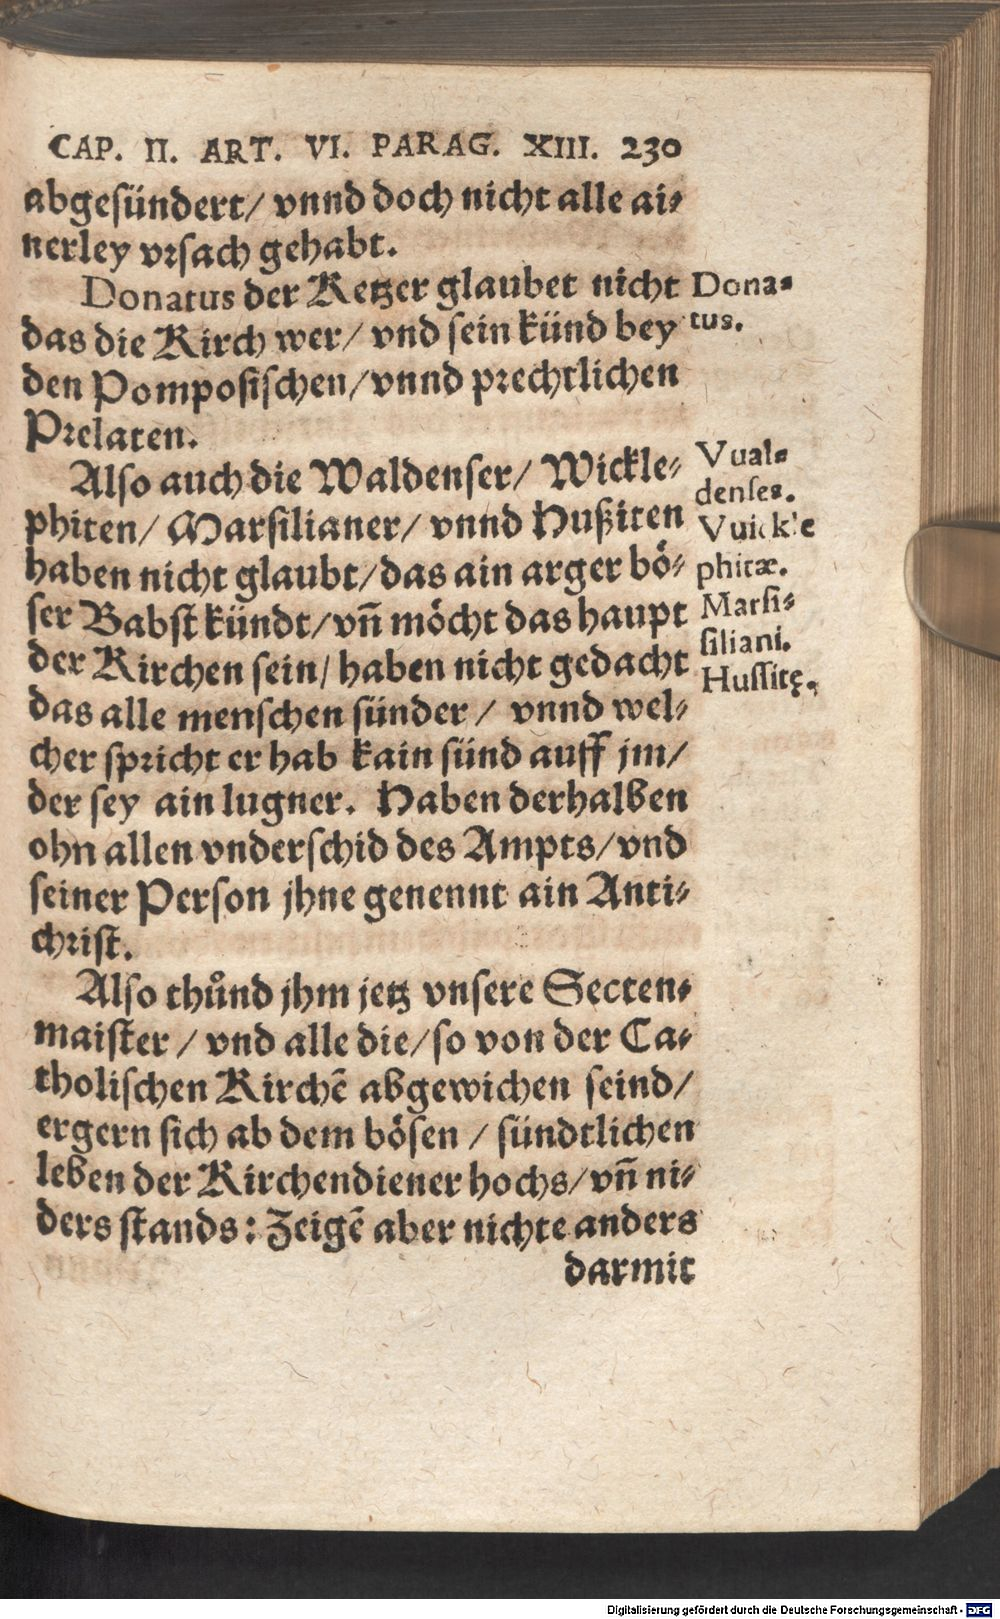 CAP. II. ART. VI. PARAG. XIII. 230
abgesündert/ vnnd doch nicht alle ai-
nerley vrsach gehabt.
Donatus der Ketzer glaubet nicht
das die Kirch wer/ vnd sein künd bey
den Pomposischen/ vnnd prechtlichen
Prelaten.
Also auch die Waldenser/ Wickle-
phiten/ Marsilianer/ vnnd Hußiten
haben nicht glaubt/ das ain arger bö-
ser Babst kündt/ vñ möcht das haupt
der Kirchen sein/ haben nicht gedacht
das alle menschen sünder / vnnd wel-
cher spricht er hab kain sünd auff jm/
der sey ain lugner. Haben derhalben
ohn allen vnderschid des Ampts/ vnd
seiner Person jhne genennt ain Anti-
christ.
Also thůnd jhm jetz vnsere Secten-
maister / vnd alle die/ so von der Ca-
tholischen Kirchẽ abgewichen seind/
ergern sich ab dem bösen / sündtlichen
leben der Kirchendiener hochs/ vñ ni-
ders stands: Zeigẽ aber nichte anders
darmit
Dona-
tus.
Vual-
denses.
Vuickle
phitæ.
Marsi-
siliani.
Hussitę.
Digitalisierung gefördert durch die Deutsche Forschungsgemeinschaft - DFG